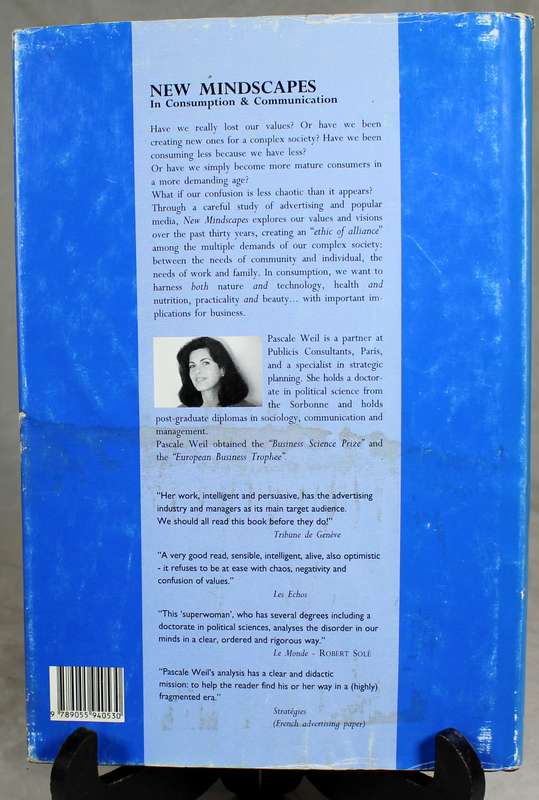 NEW MINDSCAPES
In Consumption & Communication
Have we really lost our values? Or have we been
creating new ones for a complex society? Have we been
consuming less because we have less?
Or have we simply become more mature consumers in
a more demanding age?
What if our confusion is less chaotic than it appears?
Through a careful study of advertising and popular
media, New Mindscapes explores our values and visions
over the past thirty years, creating an “ethic of alliance”
among the multiple demands of our complex society:
between the needs of community and individual, the
needs of work and family. In consumption, we want to
harness both nature and technology, health and
nutrition, practicality and beauty... with important im-
plications for business.
Pascale Weil is a partner at
Publicis Consultants, Paris,
and a specialist in strategic
planning. She holds a doctor-
ate in political science from
the Sorbonne and holds
post-graduate diplomas in sociology, communication and
management.
Pascale Weil obtained the “Business Science Prize” and
the “European Business Trophee”.
“Her work, intelligent and persuasive, has the advertising
industry and managers as its main target audience.
We should all read this book before they do!”
Tribune de Genève
“A very good read, sensible, intelligent, alive, also optimistic
- it refuses to be at ease with chaos, negativity and
confusion of values.”
Les Echos
“This ‘superwoman’, who has several degrees including a
doctorate in political sciences, analyses the disorder in our
minds in a clear, ordered and rigorous way.”
Le Monde - ROBERT SOLÉ
“Pascale Weil's analysis has a clear and didactic
mission: to help the reader find his or her way in a (highly)
fragmented era.”
Stratégies
(French advertising paper)
9 789055 940530